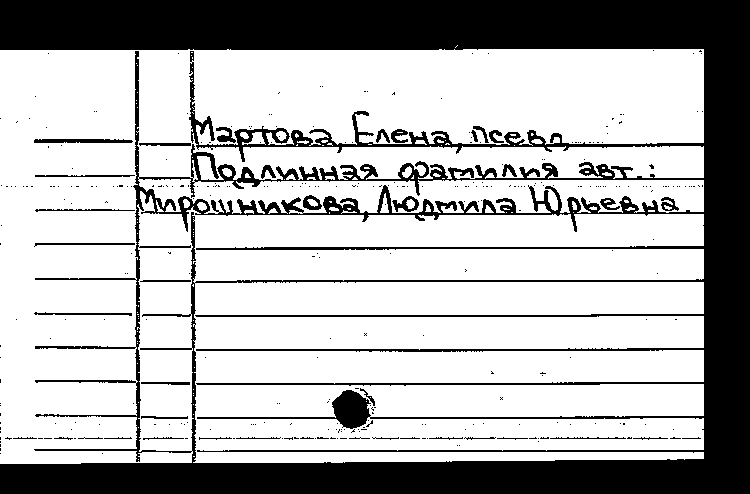 Мартова, Елена, псевд.
Подлинная фамилия авт.:
Мирошникова, Людмила Юрьевна.